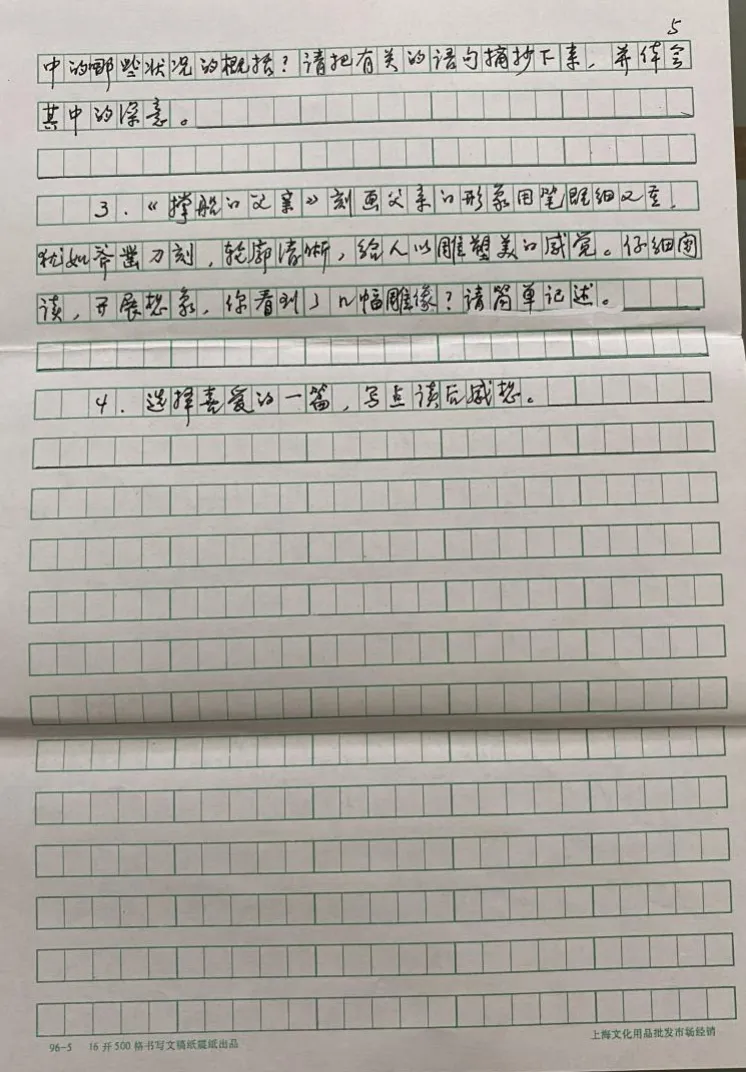 5
中的哪些状况的概括？请把有关的语句摘抄下来，并体会
其中的深意。
3.《撑船的父亲》刻画父亲的形象用笔既细又重，
犹如斧凿刀刻，轮廓清晰，给人以雕塑美的感觉。仔细阅
读，开展想象，你看到了几幅雕像？请简单记述。
4.选择喜爱的一篇，写点读后感想。
96-5 16开500格书写文稿纸震纸出品
上海文化用品批发市场经销